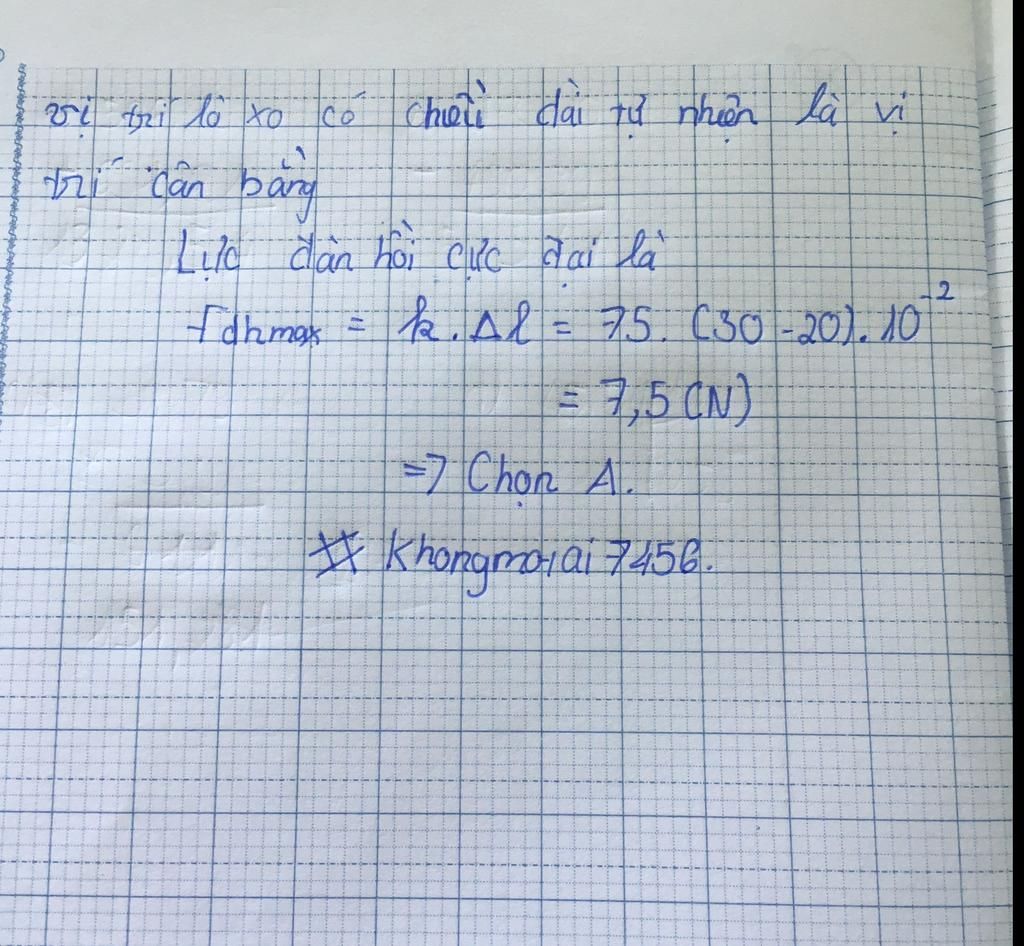 vị trí lò xo có chiều dài tự nhiên là vị
trí cân bằng
Lực đàn hồi cực đại là
Fdhmax = k.Δl = 75.(30-20).10⁻²
= 7,5 (N)
=> Chọn A.
# Khongmo1ai7456.